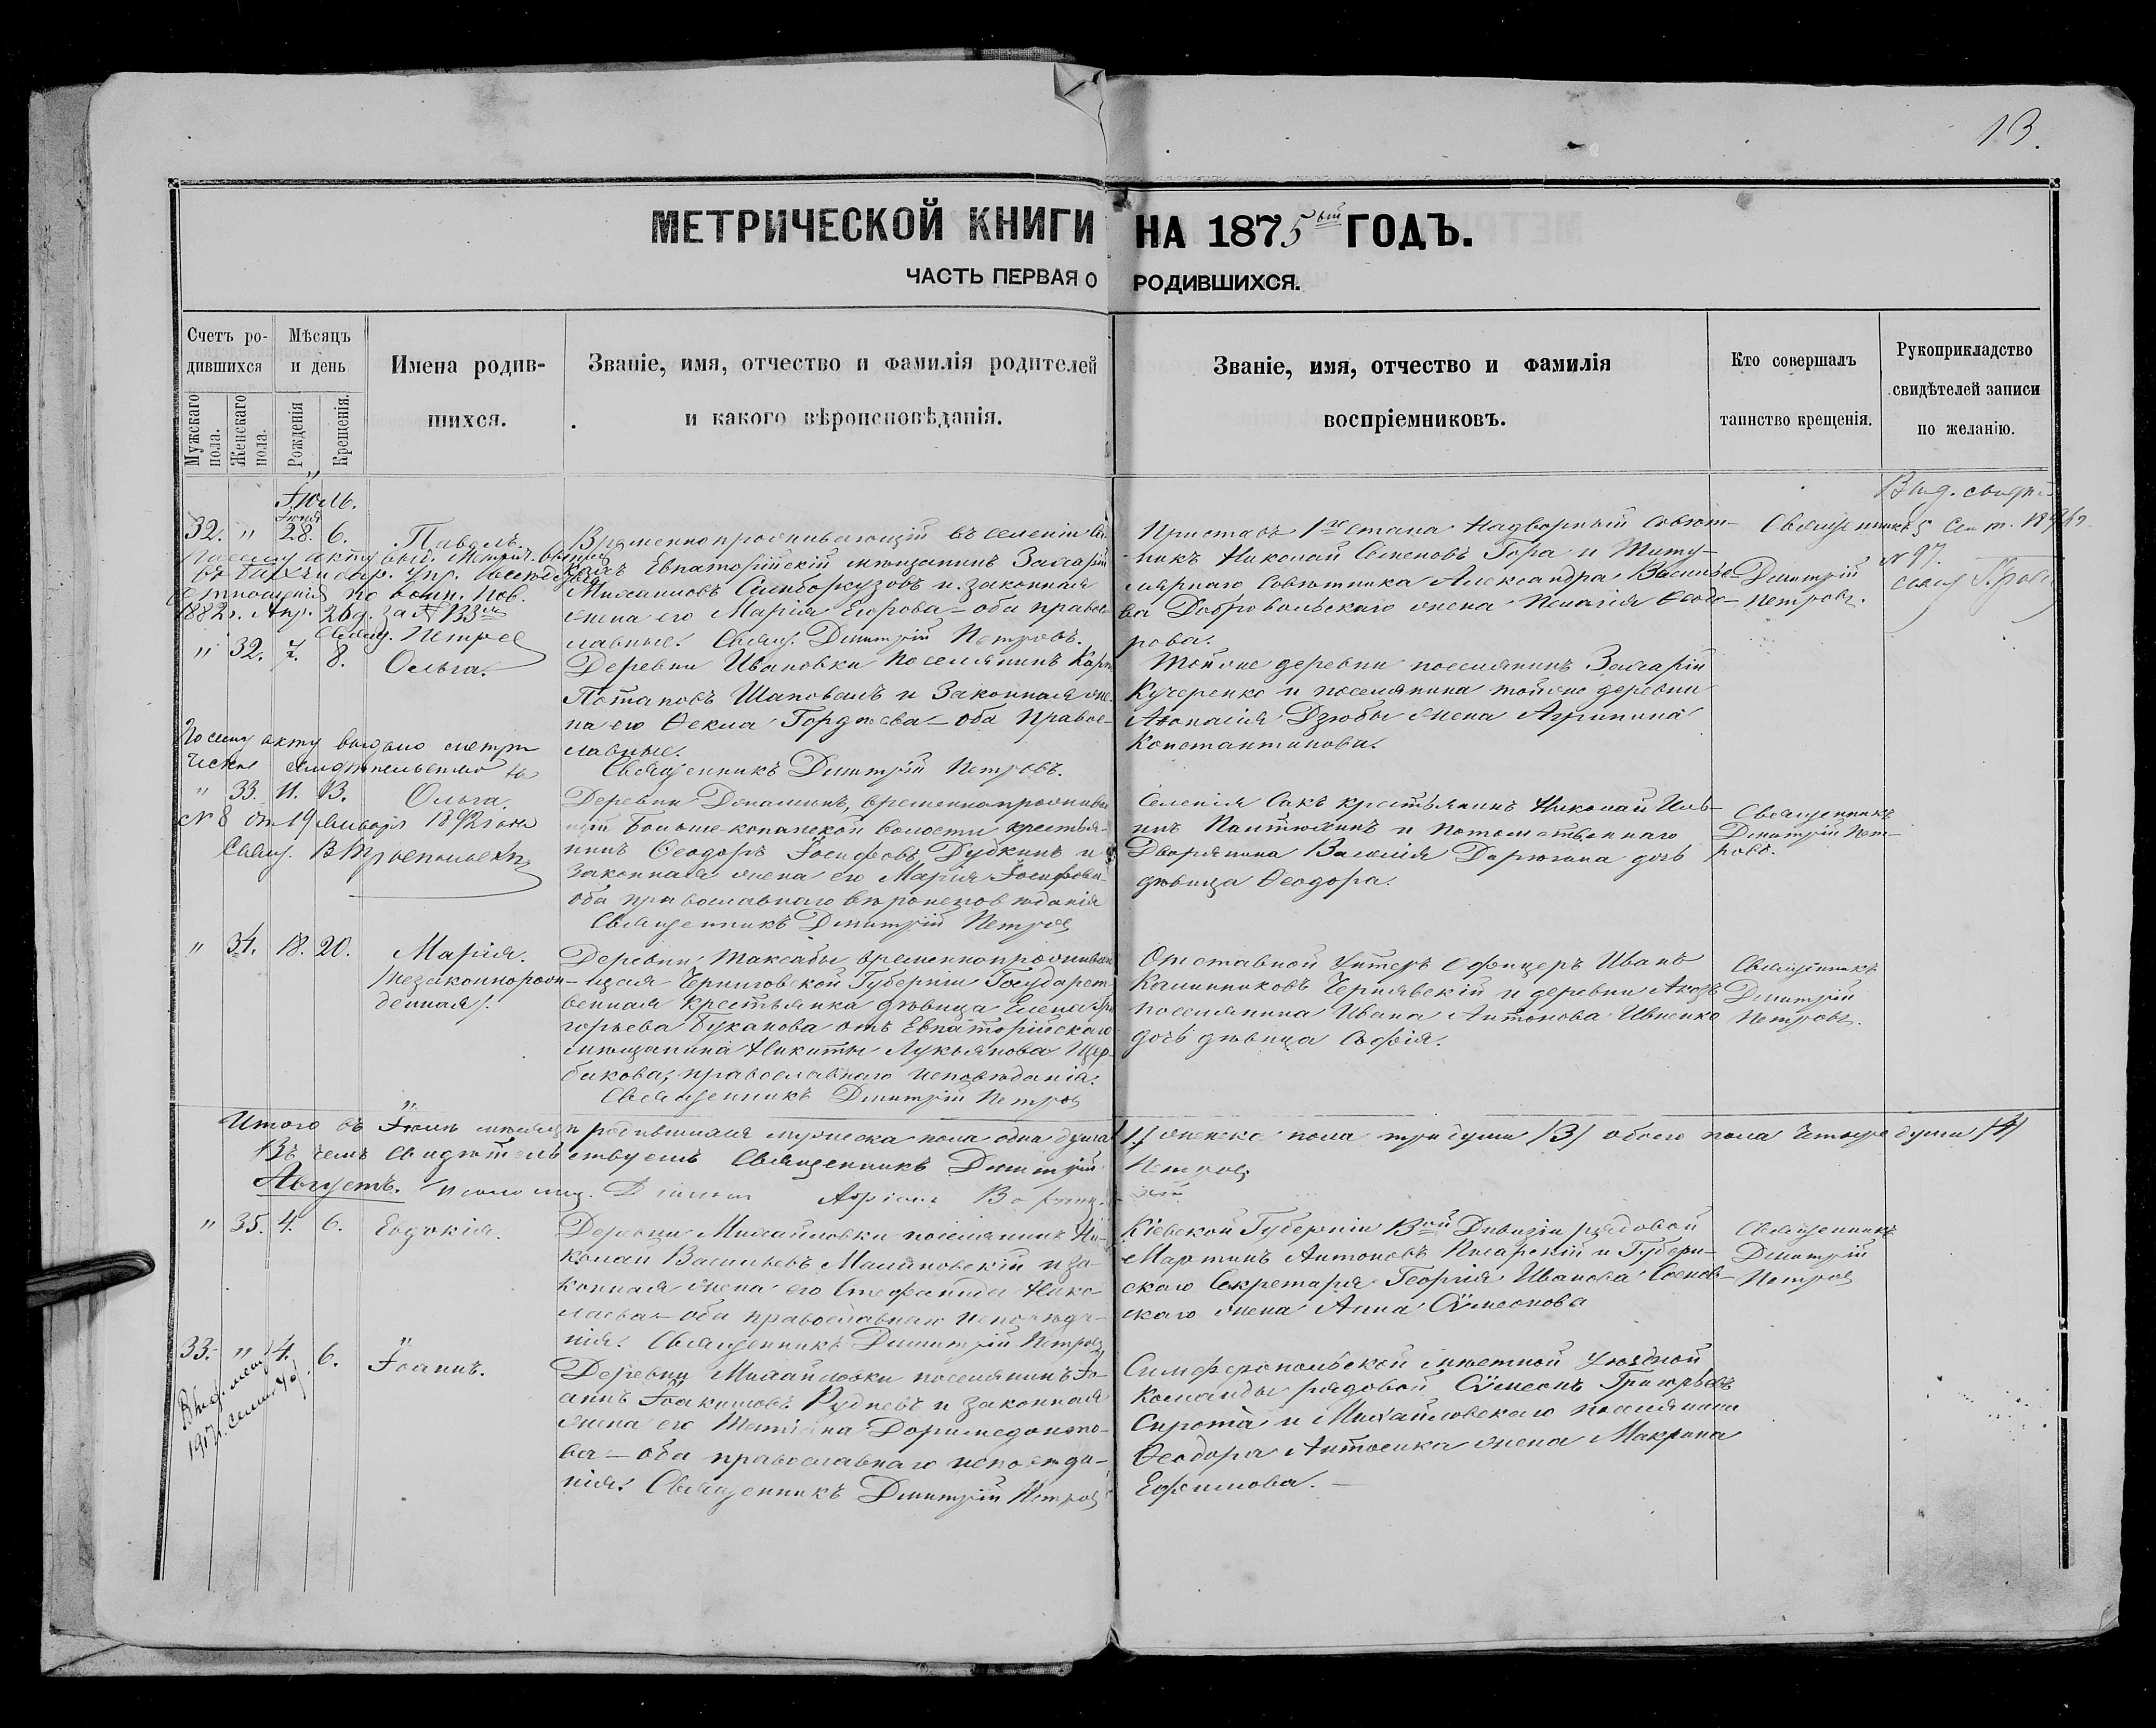 13.
МЕТРИЧЕСКОЙ КНИГИ НА 1875ый ГОДЪ.
ЧАСТЬ ПЕРВАЯ О РОДИВШИХСЯ.
Счетъ ро-
дившихся
Мужскаго пола.
Женскаго пола.
Мѣсяцъ
и день
Рожденія
Крещенія.
Имена родив-
шихся.
Званіе, имя, отчество и фамилія родителей
и какого вѣроисповѣданія.
Званіе, имя, отчество и фамилія
воспріемниковъ.
Кто совершалъ
таинство крещенія.
Рукоприкладство
свидѣтелей записи
по желанію.
Іюль.
Іюня
32. " 28. 6. Павелъ.
Временнопроживающій въ селеніи
Евпаторійскій мѣщанинъ Захарій
Михаиловъ и законная
жена его Марія Егорова – оба право-
славные. Свящ. Димитрій Петровъ.
Приставъ 1го стана Надворный Совѣт-
никъ Николай Семеновъ Гора и Титу-
лярнаго Совѣтника Александра
ва Добровольскаго жена Пелагія Ѳеодо-
рова.
Священникъ
Димитрій
Петровъ.
Выд.
5 Сент.
№ 97.
По сему акту выд. Метрич.
1882г. Апр. 26д. за № 133
Свящ. Петров
" 32. 7. 8. Ольга.
Деревни Ивановки поселянинъ
Потаповъ Шаповалъ и законная же-
на его Ѳекла Гордѣева – оба право-
славные.
Священникъ Димитрій Петровъ.
Тойже деревни поселянинъ Захарій
Кучеренко и поселянина тойже деревни
Аѳанасія Дзюбы жена Агрипина
Константинова.
По сему акту выдано метри
ческое свидѣтельство за
№ 8 от 19 Января 1892 года
Свящ.
" 33. 11. 13. Ольга.
Деревни временнопроживаю
щій Больше-копанской волости крестья-
нинъ Ѳеодоръ Іосифовъ Дудкинъ и
законная жена его Марія Іосифова
оба православнаго вѣроисповѣданія
Священникъ Димитрій Петров
Селенія Сакъ крестьянинъ Николай Иль-
инъ Пантюхинъ и потомственнаго
Дворянина Василія дочь
дѣвица Ѳеодора.
Священникъ
Димитрій Пет-
ровъ.
" 34. 18. 20. Марія.
/незаконнорож-
денная/.
Деревни временнопрожива
щая Черниговской Губерніи Государст
венная крестьянка дѣвица Елена Гри
горьева Буканова отъ Евпаторійскаго
мѣщанина Никиты Лукьянова Щер-
бакова, православнаго исповѣданія.
Священникъ Димитрій Петров
Отставной Унтеръ Офицеръ Иванъ
Калинниковъ Чернявскій и деревни
поселянина Ивана Антонова Ивненко
дочь дѣвица Софія.
Священникъ
Димитрій
Петровъ.
Итого въ Іюлѣ мѣсяцѣ родившихся мужеска пола одна душа /1/ женска пола три души /3/ обоего пола четыре души /4/
Въ чемъ свидѣтельствуетъ Священникъ Димитрій Петров
Августъ.
" 35. 4. 6. Евдокія.
Деревни Михайловки поселянинъ Ни-
колай Васильевъ Малиновскій и за-
конная жена его Стефанида Нико-
лаева – оба православнаго исповѣда-
нія. Священникъ Димитрій Петров
Кіевской Губерніи 13ой Дивизіи рядовой
Мартинъ Антоновъ Писарскій и Губерн-
скаго Секретаря Георгія Иванова
скаго жена Анна Сѵмеонова
Священникъ
Димитрій
Петров
33. " 4. 6. Іоаннъ.
Деревни Михайловки поселянинъ Іо-
аннъ Іоакимовъ Рудневъ и законная
жена его Татіана Доримедонто-
ва – оба православнаго исповѣда-
нія. Священникъ Димитрій Петров
Симферопольской мѣстной Уѣздной
Команды рядовой Сѵмеонъ Григорьевъ
Сирота и Михайловскаго поселянина
Ѳеодора жена Макрина
Ефимова.